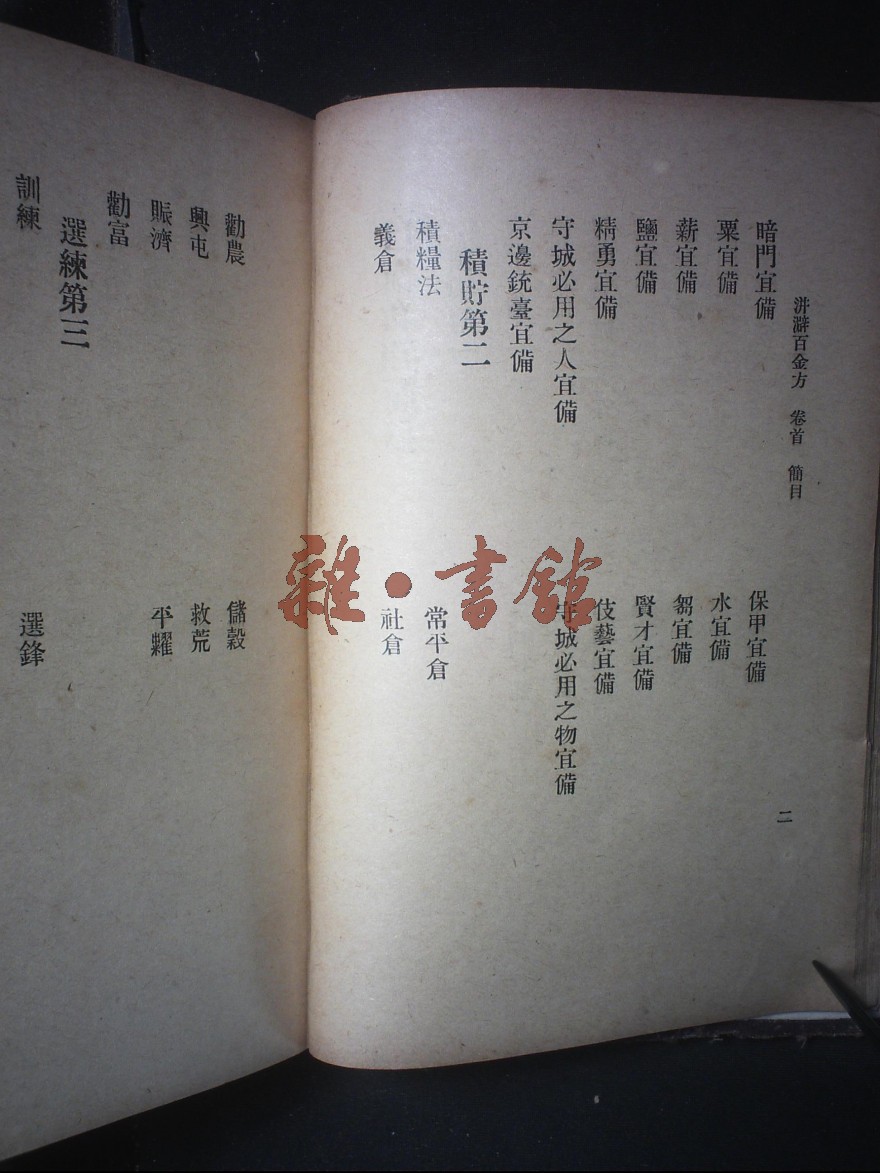 洴澼百金方 卷首 簡目
二
暗門宜備 保甲宜備
粟宜備 水宜備
薪宜備 芻宜備
鹽宜備 賢才宜備
精勇宜備 伎藝宜備
守城必用之人宜備 守城必用之物宜備
京邊銃臺宜備
積貯第二
積糧法 常平倉
義倉 社倉
勸農 儲穀
興屯 救荒
賑濟 平糶
勸富
選練第三
訓練 選鋒
雜·書館